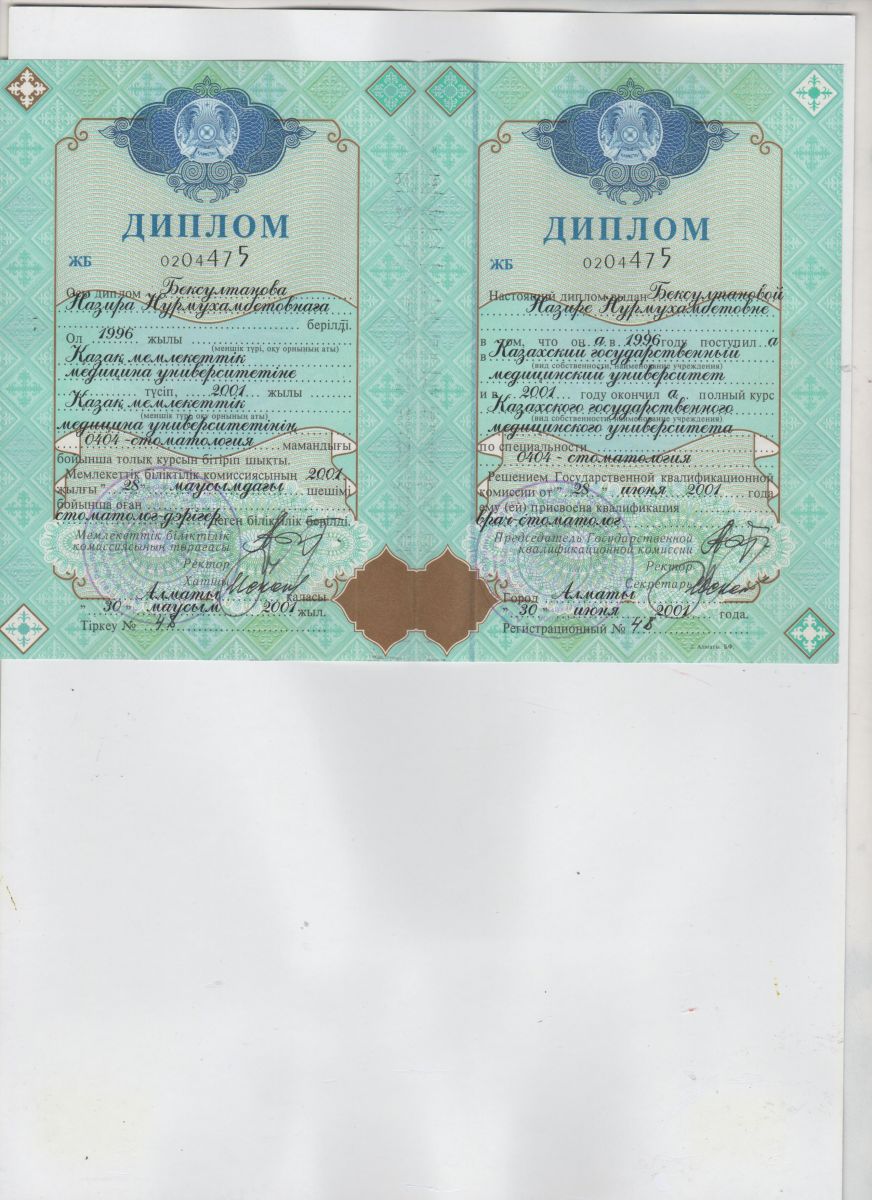 ДИПЛОМ
ЖБ 0204475
Осы диплом Бексултанова
Назира Нурмухамбетовнаға
берілді.
Ол 1996 жылы
(меншік түрі, оқу орнының аты)
Қазақ мемлекеттік
медицина университетіне
түсіп, 2001 жылы
Қазақ мемлекеттік
(меншік түрі, оқу орнының аты)
медицина университетінің
0404-стоматология мамандығы
бойынша толық курсын бітіріп шықты.
Мемлекеттік біліктілік комиссиясының 2001
жылғы "28" маусымдағы шешімі
бойынша оған
стоматолог-дәрігер деген біліктілік берілді.
Мемлекеттік біліктілік
комиссиясының төрағасы
Ректор
Хатшы
Алматы қаласы
"30" маусым 2001 жыл.
Тіркеу № 48
ДИПЛОМ
ЖБ 0204475
Настоящий диплом выдан Бексултановой
Назире Нурмухамбетовне
в том, что он а в 1996 году поступил а
в Казахский государственный
(вид собственности, наименование учреждения)
медицинский университет
и в 2001 году окончил а полный курс
Казахского государственного
(вид собственности, наименование учреждения)
медицинского университета
по специальности
0404-стоматология
Решением Государственной квалификационной
комиссии от "28" июня 2001 года
ему (ей) присвоена квалификация
врач-стоматолог
Председатель Государственной
квалификационной комиссии
Ректор
Секретарь
Город Алматы
"30" июня 2001 года.
Регистрационный № 48